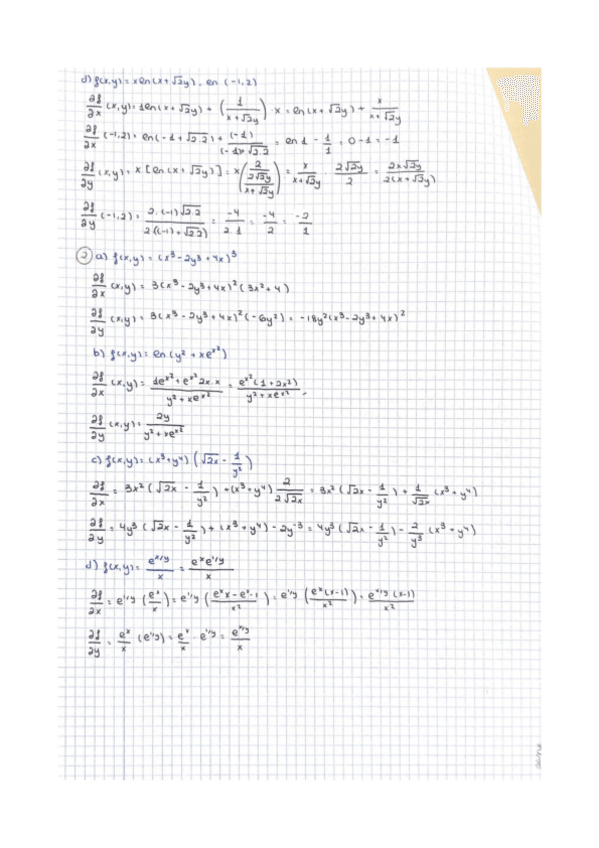 d) f(x,y) = x en (x + √2y) , en (-1,2)
∂f/∂x (x,y) = 1 en (x + √2y) + (1/(x + √2y)) · x = en (x + √2y) + x/(x + √2y)
∂f/∂x (-1,2) = en (-1 + √2.2) + (-1)/((-1) + √2.2) = en 1 - 1/1 = 0 - 1 = -1
∂f/∂y (x,y) = x · [en (x + √2y)] = x ((2/(2√2y))/(x + √2y)) = x/(x + √2y) · 2√2y/2 = 2x√2y/(2(x + √2y))
∂f/∂y (-1,2) = 2·(-1)√2.2/(2((-1) + √2.2)) = -4/(2.1) = -4/2 = -2/1
② a) f(x,y) = (x³ - 2y³ + 4x)³
∂f/∂x (x,y) = 3(x³ - 2y³ + 4x)² (3x² + 4)
∂f/∂y (x,y) = 3(x³ - 2y³ + 4x)² (-6y²) = -18y² (x³ - 2y³ + 4x)²
b) f(x,y) = en (y² + xeˣ²)
∂f/∂x (x,y) = (1eˣ² + eˣ² 2x · x)/(y² + xeˣ²) = eˣ² (1 + 2x²)/(y² + xeˣ²)
∂f/∂y (x,y) = 2y/(y² + xeˣ²)
c) f(x,y) = (x³ + y⁴) (√2x - 1/y²)
∂f/∂x = 3x² (√2x - 1/y²) + (x³ + y⁴) 2/(2√2x) = 3x² (√2x - 1/y²) + 1/√2x (x³ + y⁴)
∂f/∂y = 4y³ (√2x - 1/y²) + (x³ + y⁴) - 2y⁻³ = 4y³ (√2x - 1/y²) - 2/y³ (x³ + y⁴)
d) f(x,y) = eˣ⁺¹ᐟʸ/x = eˣ e¹ᐟʸ/x
∂f/∂x = e¹ᐟʸ (eˣ/x) = e¹ᐟʸ ((eˣ x - eˣ · 1)/x²) = e¹ᐟʸ (eˣ (x-1)/x²) = eˣ⁺¹ᐟʸ (x-1)/x²
∂f/∂y = eˣ/x (e¹ᐟʸ) = eˣ/x · e¹ᐟʸ = eˣ⁺¹ᐟʸ/x